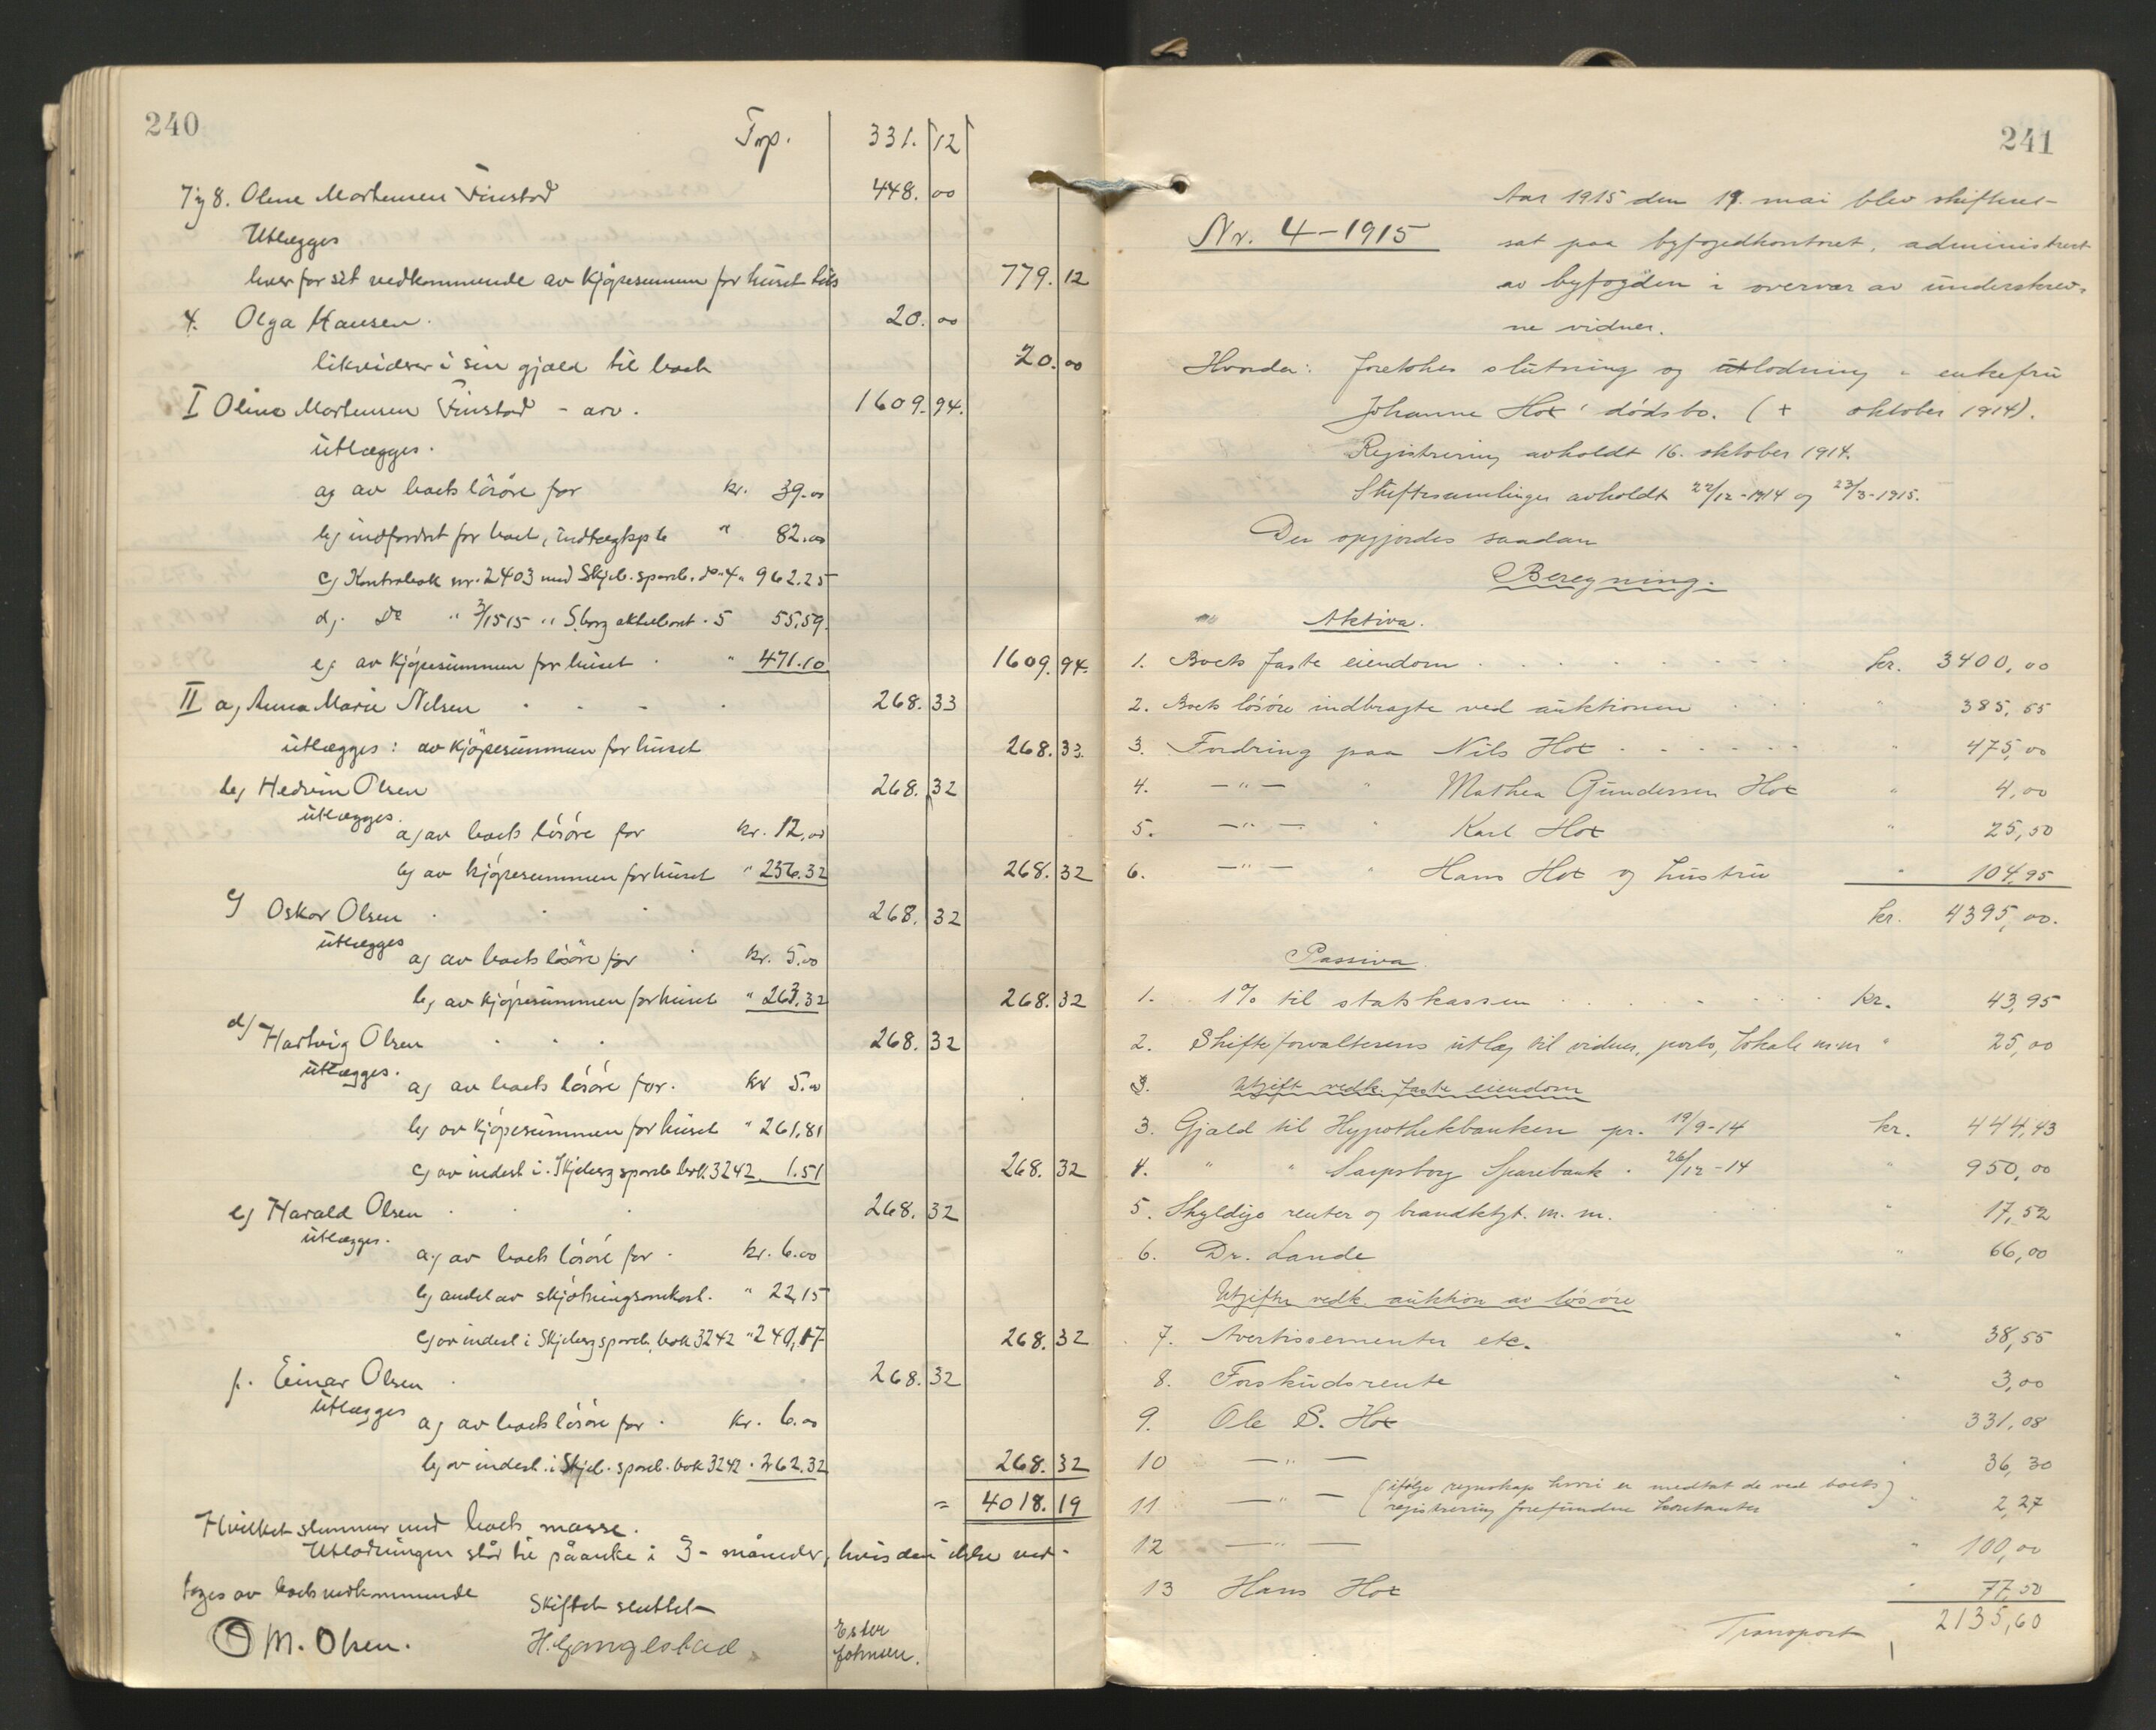 240
Trp. 331. 12
7 og 8. Oline Mortensen Finstad 448. 00
Utlægges
hver for sit vedkommende av kjøpesummen for huset 779. 12
4. Olga Hansen. 20. 00
likviderer i sin gjæld til boet 20. 00
I Oline Mortensen Finstad - arv. 1609. 94.
utlægges.
a) av boets lösöre for kr. 39.00
b) indfordret for boet, " 82.00
c) Kontrabok nr. 2403 med Skjeb. spareb. 4 " 962.25
d) Do " 3/1515 " S.borg 5 55.59.
e) av kjøpesummen for huset " 471.10 1609. 94.
II a) Anna Marie Nilsen 268. 33
utlægges: av kjøpesummen for huset 268. 33.
b) Olsen 268. 32
utlægges.
a) av boets lösöre for kr. 12,00
b) av kjøpesummen for huset " 256.32 268. 32
c) Oskar Olsen 268. 32
utlægges
a) av boets lösöre for kr. 5.00
b) av kjøpesummen for huset " 263.32 268. 32
d) Hartvig Olsen 268. 32
utlægges.
a) av boets lösöre for. kr 5.00
b) av kjøpesummen for huset " 261,81
c) av indest. i Skjeberg spareb. bok 3242 1.51 268. 32
e) Harald Olsen 268. 32
utlægges.
a) av boets lösöre for kr. 6.00
b) andel av skjøtningsomkost. " 22,15
c) av indest i Skjeberg spareb. bok 3242 " 240,17 268. 32
f. Einar Olsen 268. 32
Utlægges
a) av boets lösöre for kr. 6.00
b) av indest. i Skjeb. spareb. bok 3242 262.32 268. 32
= 4018. 19
Hvilket stemmer med boets masse.
Utlodningen står til påanke i 3 - måneder, hvis den ikke ved-
tages av boets vedkommende
Skiftet sluttet
M. Olsen. H. Gangestad Ester Johnsen.
241
Nr. 4 - 1915
Aar 1915 den 19. mai blev skifteret-
sat paa byfogedkontoret, administrert
av byfogden i overvær av underskrev-
ne vidner.
Hvorda: foretokes slutning og utlodning i enkefru
Johanne Hox' dødsbo. (+ oktober 1914).
Registrering avholdt 16. oktober 1914.
Skiftesamlinger avholdt 22/12-1914 og 23/3-1915.
Der opgjordes saadan
Beregning.
Aktiva.
1. Boets faste eiendom kr. 3400,00
2. Boets lösöre indbragte ved auktionen " 385,55
3. Fordring paa Nils Hox " 475,00
4. —"— " Mathea Gundersen Hox " 4,00
5. —"— " Karl Hox " 25,50
6. —"— " Hans Hox og hustru " 104,95
kr. 4395,00.
Passiva.
1. 1% til statskassen kr. 43,95
2. Skifteforvalterens utlæg til vidner, porto, lokale m.m " 25,00
3. Utgift vedk. faste eiendom
3. Gjæld til Hypothekbanken pr. 19/9-14 kr. 444,43
4. " " Sarpsborg Sparebank " 26/12-14 " 950,00
5. Skyldige renter og brandktgt. m. m. " 17,52
6. Dr. Lande " 66,00
Utgifter vedk. auktion av lösöre
7. Avertissementer etc. " 38,55
8. Forskudsrente " 3,00
9. Ole S. Hox " 331,08
10 —"— " 36,30
11 —"— (ifølge regnskap hvori er medtat de ved boets
registrering forefundne kontanter) " 2,27
12 —"— " 100,00
13 Hans Hox " 77,50
Transport 2135,60